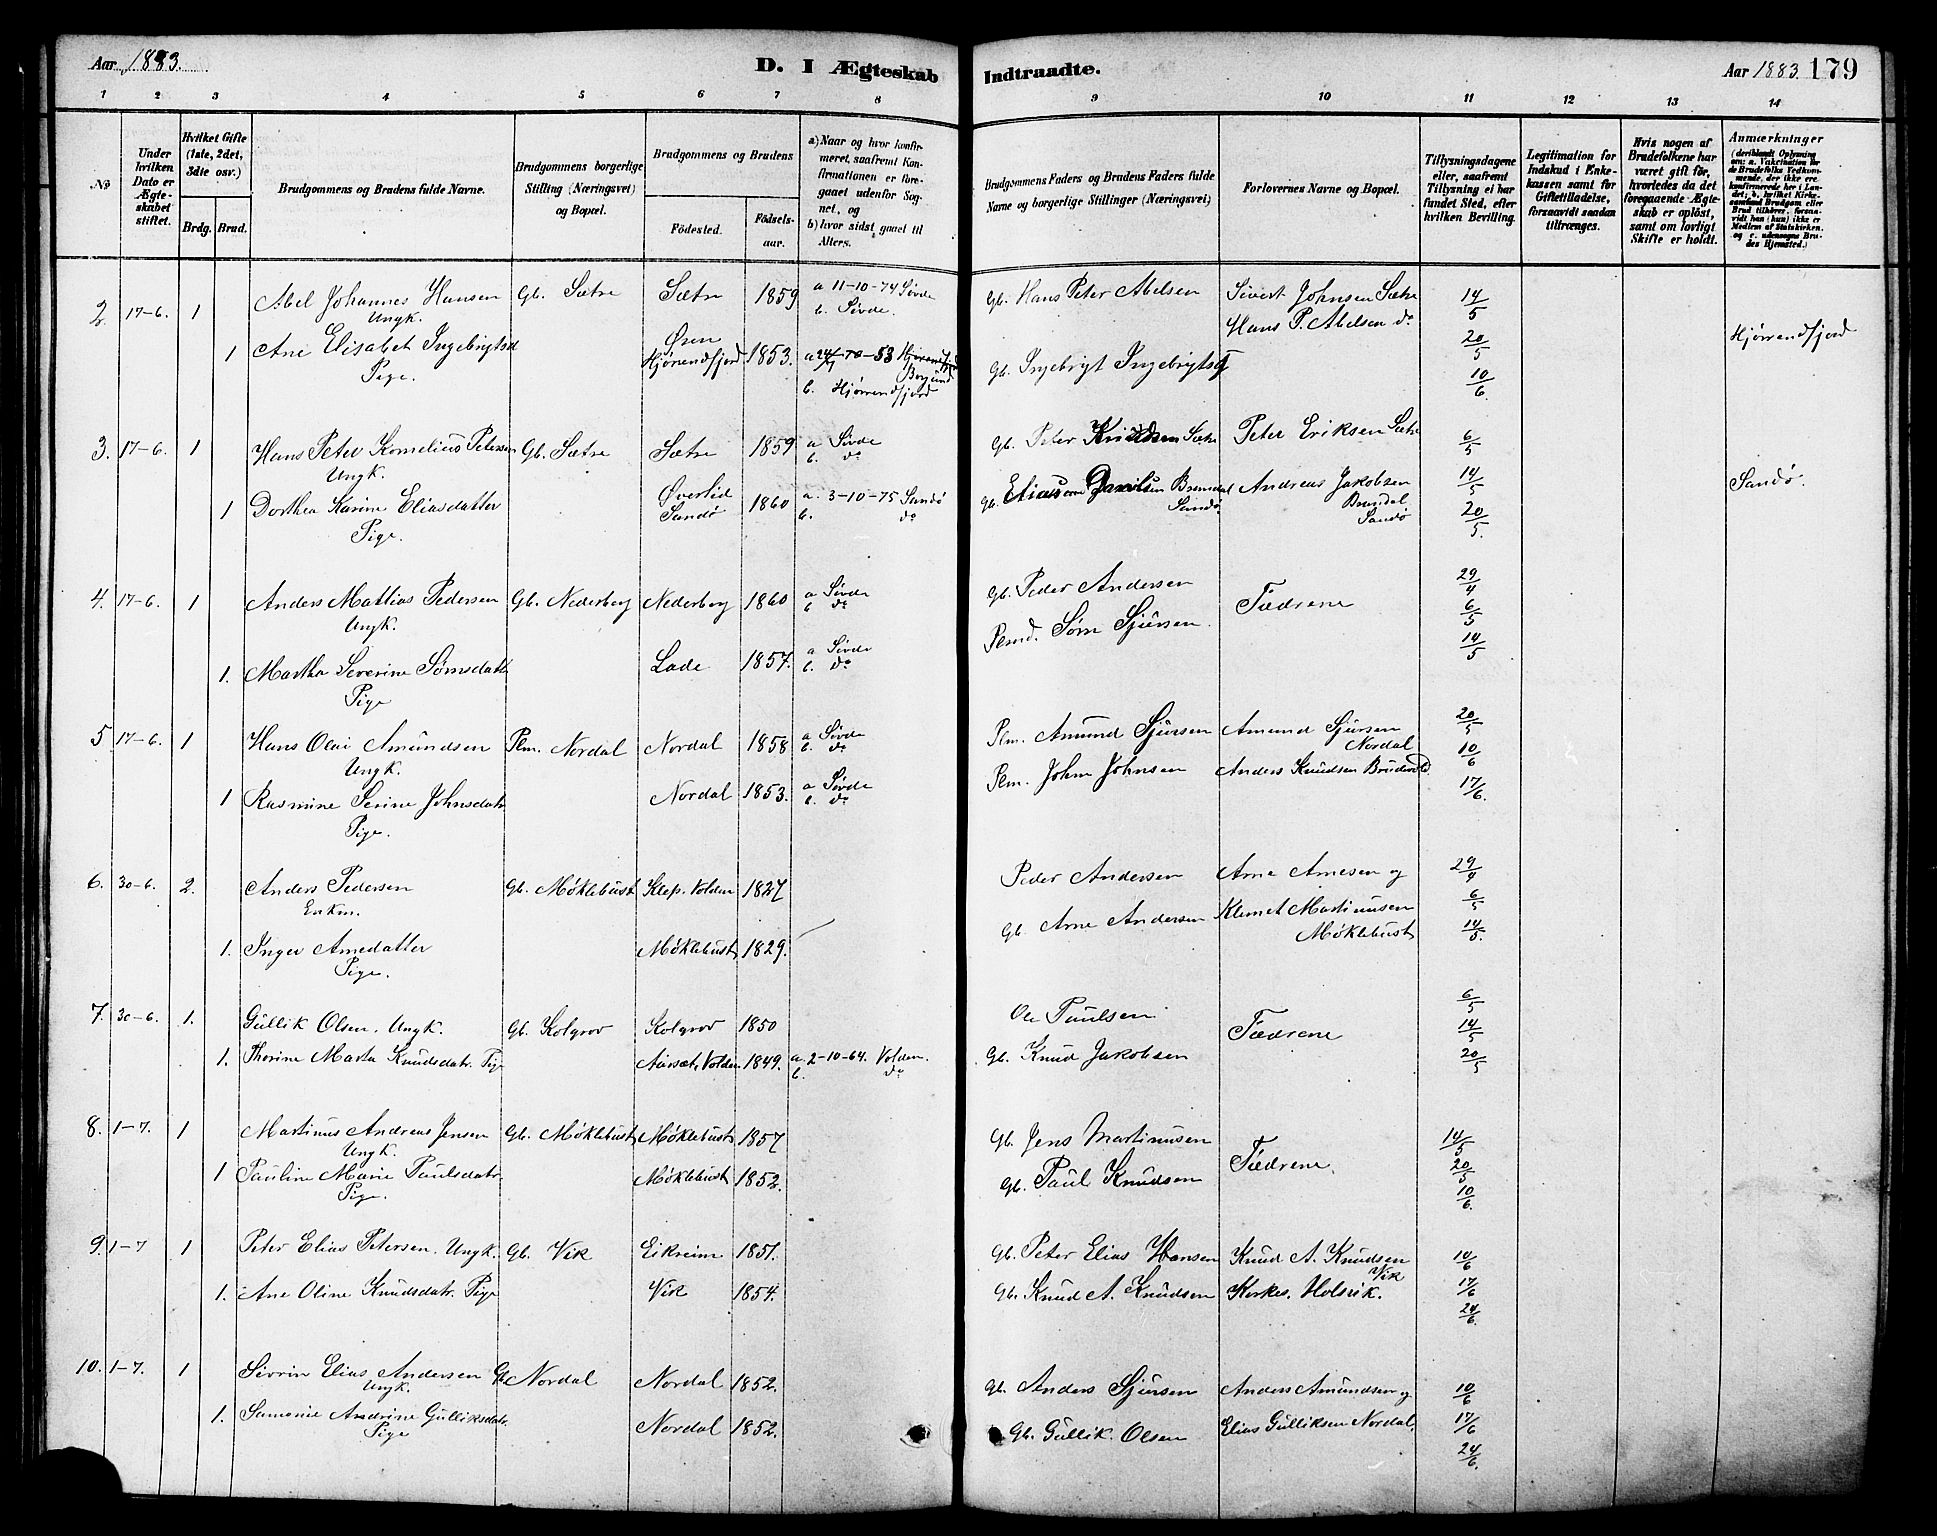 Aar 1883. D. I Ægteskab Indtraadte. Aar 1883. 179
1 2 3 4 5 6 7 8 9 10 11 12 13 14
No
Under hvilken Dato er Ægteskabet stiftet.
Hvilket Gifte (1ste, 2det, 3die osv.)
Brdg. Brud.
Brudgommens og Brudens fulde Navne.
Brudgommens borgerlige Stilling (Næringsvei) og Bopæl.
Brudgommens og Brudens
Fødested. Fødselsaar.
a) Naar og hvor konfirmeret, saafremt Konfirmationen er foregaaet udenfor Sognet, og
b) hvor sidst gaaet til Alters.
Brudgommens Faders og Brudens Faders fulde Navne og borgerlige Stillinger (Næringsvei)
Forlovernes Navne og Bopæl.
Tillysningsdagene eller, saafremt Tillysning ei har fundet Sted, efter hvilken Bevilling.
Legitimation for Indskud i Enkekassen samt for Giftetilladelse, forsaavidt saadan tiltrænges.
Hvis nogen af Brudefolkene har været gift før, hvorledes da det foregaaende Ægteskab er opløst, samt om lovligt Skifte er holdt.
Anmærkninger
2. 17-6. 1 Abel Johannes Hansen Gb. Sætre Sætre 1859 a 11-10-74 Søvde Gb. Hans Peter Abelsen Sivert Johnsen Sætre 14/5
Ungk. b. Søvde. Hans P. Abelsen do 20/5
1 Ane Elisabet Ingebrigtsd Øren Hjørendfjord 1853. Gb. Ingebrigt 10/6 Hjørrendfjord
Pige. b. Hjørrendfjord
3. 17-6. 1 Hans Peter Kornelius Petersen Gb. Sætre Sætre 1859 a Søvde Gb. Peter Knudsen Sætre Peter Eriksen Sætre 6/5
Ungk. b. do
1 Dorthea Karine Eliasdatter Øverlid Sandø 1860 a. 3-10-75 Sandø Gb. Elias Brandal Sandø Andreas Jakobsen Brandal Sandø 14/5 20/5 Sandø.
Pige. b. do
4. 17-6. 1 Anders Mattias Pedersen Gb. Nederberg Nederberg 1860 a Søvde b do Gb. Peder Andersen Fædrene 29/4
Ungk. 6/5
1. Martha Severine Sørnsdatt Lade 1857. a Søvde b. do Plmd. Sørn Sjursen. 14/5
Pige
5 17-6. 1 Hans Olai Amundsen Plm. Nordal Nordal 1858 a Søvde b. do Plm. Amund Sjursen Amund Sjursen Nordal 20/5
Ungk. 10/6
1 Rasmine Serine Johnsdatr Nordal 1853. a Søvde b. do Plm. John Johnsen Anders Knudsen 17/6.
Pige.
6. 30-6. 2. Anders Pedersen Gb. Møklebust Klep. Volden 1827 Peder Andersen Arne Arnesen og 29/4
Enkm. 6/5
1. Inger Arnedatter Møklebust 1829. Gb. Arne Andersen Klemet Martinusen Møklebust 14/5.
Pige.
7. 30-6. 1. Gullik Olsen. Ungk. Gb. Kolgrov Kolgrov 1850 Ole Paulsen Fædrene 6/5 14/5
1. Thorine Marta Knudsdatr. Pige Aursæt, Volden 1849. a. 2-10-64. Volden. b. do Gb. Knud Jakobsen 20/5
8. 1-7. 1 Martinus Andreas Jensen Gb. Møklebust Møklebust 1857 Gb. Jens Martinusen Fædrene. 14/5
Ungk. 20/5
1 Pauline Marie Paulsdatr. Møklebust 1852. Gb. Paul Knudsen 10/6.
Pige.
9. 1-7 1 Peter Elias Petersen. Ungk. Gb. Vik Eikreim 1851. Gb. Peter Elias Hansen Knud A. Knudsen Vik 10/6
1. Ane Oline Knudsdatr. Pige Vik 1854. Gb. Knud A. Knudsen Kirkes. Holsvik. 17/6 24/6
10. 1-7. 1 Elias Andersen Gb. Nordal Nordal 1852. Gb. Anders Sjursen Anders Amundsen og 10/6
Ungk. 17/6
1. Andrine Gulliksdatr. Nordal 1852. Gb. Gullik. Olsen Elias Gulliksen Nordal. 24/6.
Pige